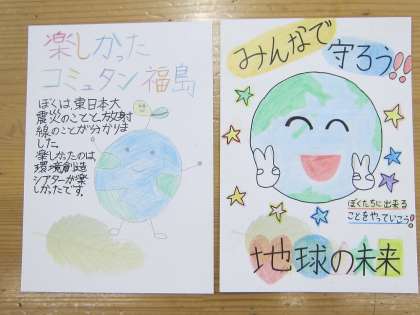 楽しかった
コミュタン福島
ぼくは、東日本大
震災のことと、放射
線のことが分かりま
した。
楽しかったのは、
環境創造
シアターが楽
しかったです。
みんなで守ろう!!
ぼくたちに出来る
ことをやっていこう!!
地球の未来